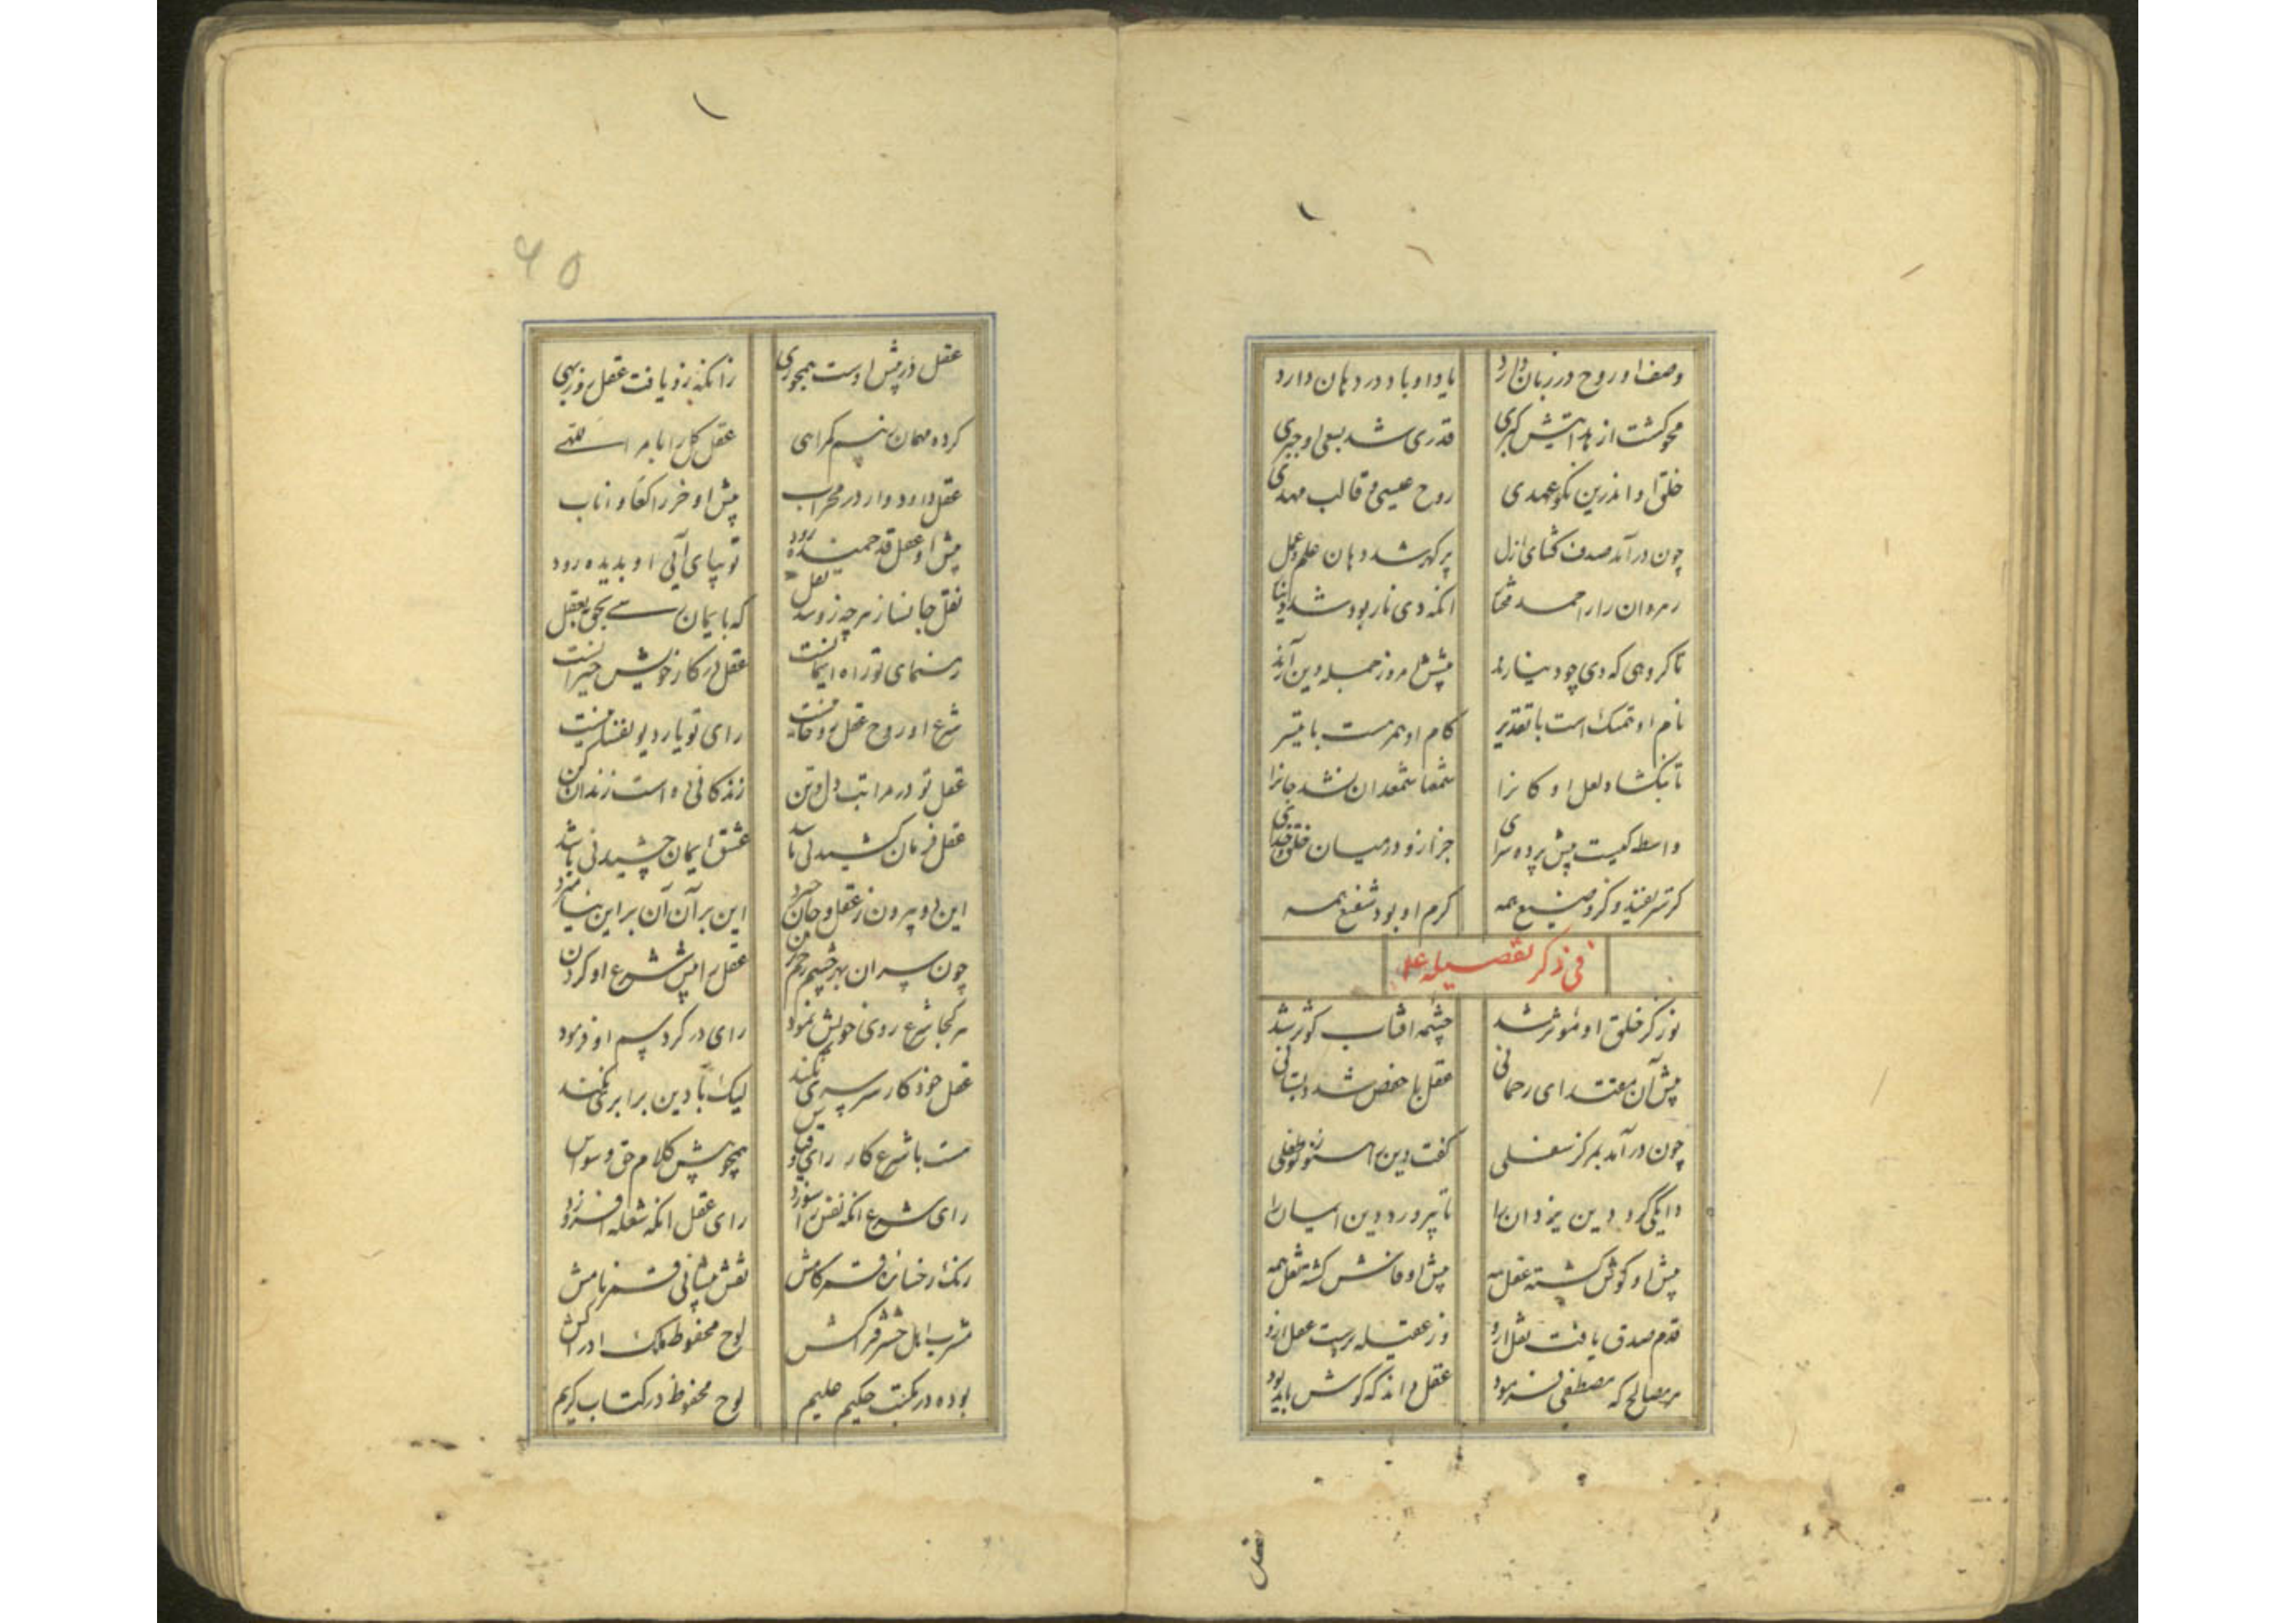 وصف او روح در زبان دارد
یاد او باد در دهان دارد
محو گشت از هدایتش گبری
قدری شد بسعی او جبری
خلق او اندرین نکو عهدی
روح عیسی و قالب مهدی
چون درآمد صدف گشای ازل
پر گهر شد دهان علم و عمل
رهروان را احمد
انکه دی نار بود شد دینا
تا گروهی که دی چو دینارند
پیشش امروز جمله دین آرند
نام او تمسک است با تقدیر
کام او همرهست با تیسر
تا بنگشاد لعل او کانرا
شمعها شمعدان نشد جانرا
واسط کیست پیش پرده سرای
جز ازو در میان خلق و خدای
گرم او بود شفیع همه
فی ذکر تفضیله علیه
نور کز خلق او موثر شد
چشمه افتاب کوثر شد
پیش آن مقتدای رحمانی
عقل با حفص شد دبستانی
چون درآمد بمرکز سفلی
گفت دین را
دایگی کرد دین یزدان را
تا بپرورد دین ایمان را
پیش او گوش گشته عقل همه
پیش او فاش گشته نقل همه
قدم صدق یافت نقل ازو
وز عقیله برست عقل ازو
هر مصالح که مصطفی فرمود
عقل داند که گوش باید بود
عقل
۶۵
عقل در پیش اوست همچو رهی
زانکه زو یافت عقل روز بهی
کرده مهمان بنیم گمراهی
عقل کل را ابا مر اللهی
عقل داود وار در محراب
پیش او خر راکعا و اناب
پیش او عقل قد خمیده رود
تو بپای آئی او بدیده رود
نقل جانساز هرچه زو شد نقل
که بایمان رسی بحق نه بعقل
رهنمای تو راه ایمانست
عقل در کار خویش حیرانست
شرع او روح عقل روحانیست
رای تو یار دیو نفسانیست
عقل تو در مراتب دل و تن
زندگانی ده است زندان کن
عقل فرمان کشیدنی باشد
عشق ایمان چشیدنی باشد
این دو بیرون ز عقل و جان خیزد
این بر آن آن بر این نیامیزد
چون سپران بهر چشم زخم زمن
عقل را پیش شرع او کردن
هر کجا شرع روی خویش نمود
رای در گرد پسم او فرسود
عقل خود کار سرسری نکند
لیک با دین برابری نکند
هست با شرع کار رای و قیاس
همچو پیش کلام حق وسواس
رای شرع انکه نفس را سوزد
رای عقل انکه شعله افروزد
رنگ رخسار فر کامش
نقش پیشانی قمر نامش
مشرب اهل حشر فتراکش
لوح محفوظ ملک ادراکش
بوده در مکتب حکیم علیم
لوح محفوظ در کتاب کریم